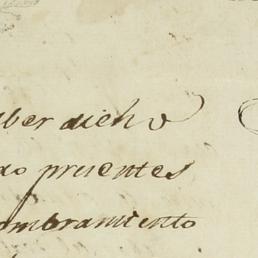 aber dicho
do presentes
ombramiento